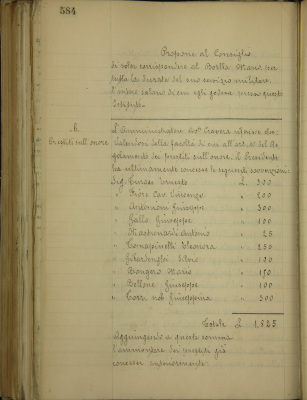 584
Propone al Consiglio
di voler corrispondere al Bortha Mario per
tutta la durata del suo servizio militare
l'intero salario di cui egli godeva presso questo
Istituto.
6.
Prestiti sull'onore
L'Amministratore Avv. Cravera riferisce che
valendosi della facoltà di cui all'art. del Re
golamento dei prestiti sull'onore, il Presidente
ha ultimamente concesso le seguenti sovvenzioni:
Sig. Ernesto L 300
" Cav. Vincenzo " 200
" Antonioni Giuseppe " 300
" Gallo Giuseppe " 100
" Mastronardi Antonio " 25
" Eleonora " 250
" Silvio " 100
" Mario " 150
" Bettone Giuseppe " 100
" Torri nob. Giuseppina " 300
Totale L 1.825
Aggiungendo a questa somma
l'ammontare dei prestiti già
concessi anteriormente